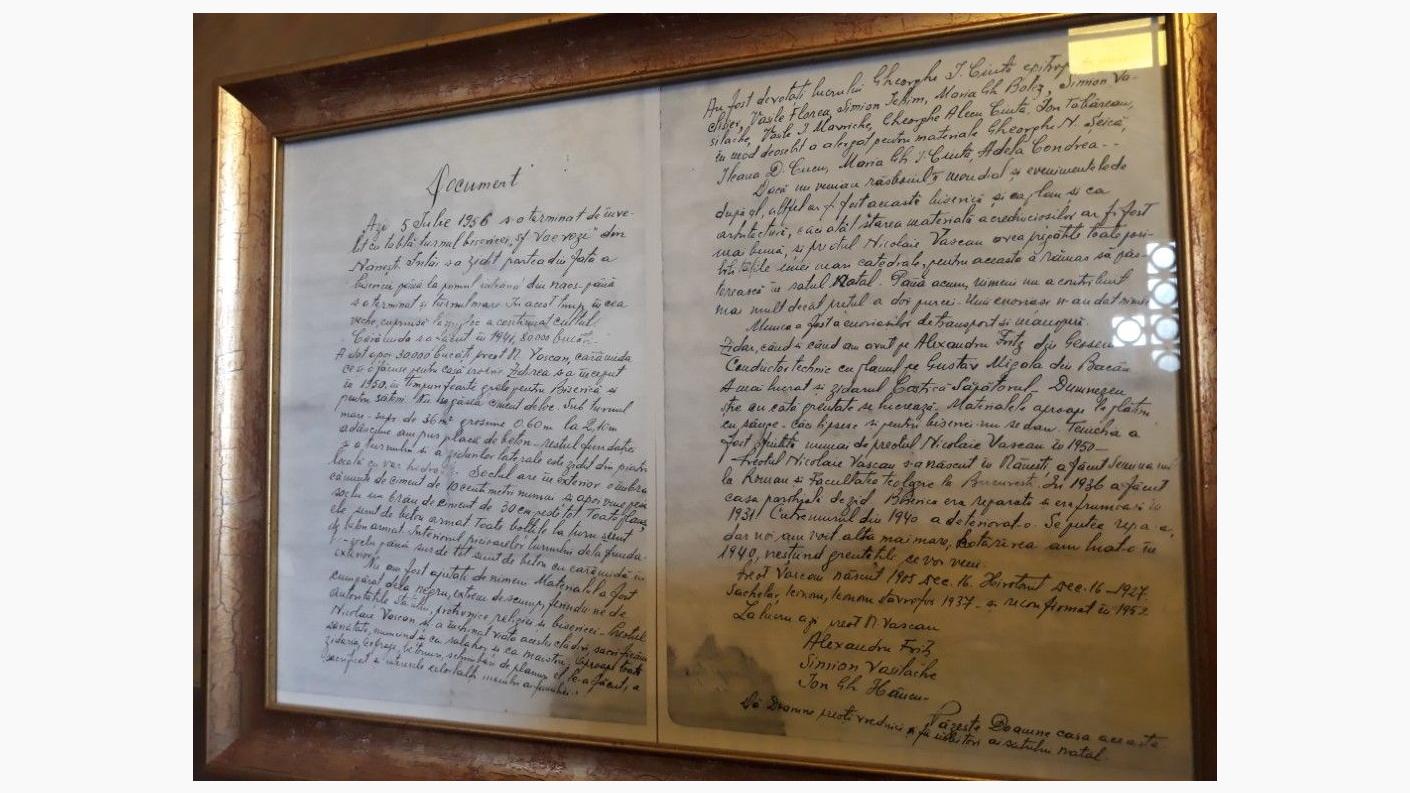 Document
Azi 5 Iulie 1956 s-a terminat de înve-
lit cu tablă turnul bisericei „Sf. Voevozi" din
Nănești. Întâi s-a zidit partea din fața a
biserică până la pomul
din naos - până
s-a terminat și turnul mare. În acest timp, în cea
veche, cuprinsă la mijloc a continuat cultul.
Cărămida s-a făcut în 1941, 80000 bucăți.
A dat apoi 30000 bucăți preot N. Vascan, cărămida
ce și-o făcuse pentru casă
Zidirea s-a început
în 1950, în timpuri foarte grele pentru Biserică și
pentru săteni. Nu se găsia ciment deloc. Sub turnul
mare - supr. de 36 m² grosime 0,60 m la 2,10 m
adâncime am pus placă de beton - restul fundației
și a turnului și a zidurilor laterale este zidit din piatră
locală cu var hidra
Soclul are în exterior o îmbră
căminte de ciment de 10 centimetri numai și apoi vine peste
soclu un brâu de ciment de 30 cm. peste tot. Toate
ele sunt de beton armat. Toate bolțile la turn sunt
de beton armat. Interiorul picioarelor turnului de la funda-
ție până sus de tot sunt de beton cu cărămidă în
exterior.
Nu am fost ajutați de nimeni. Materialul a fost
cumpărat de la negru, extrem de scump, fiindu-ne de
autoritățile Statului, potrivnice religiei și bisericei. Preotul
Nicolaie Vascan și-a închinat viața acestei clădiri, sacrificându
sănătate, muncind și ca salahor și ca maistru. Aproape toată
zidaria, cofraj, betonuri, schimbări de planuri el le-a făcut, a
sacrificat și interesele celorlalți membri ai familiei.
Au fost devotați lucrului Gheorghe I. Ciută epitrop
clisier, Vasile Florea, Simion Ichim, Maria Gh. Boliz, Simion Va-
silache, Vasile I. Mavriche, Gheorghe Alecu Ciută, Ion Tăbărean,
în mod deosebit a alergat pentru materiale Gheorghe N. Șeică,
Ileana D. Cucu, Maria Gh. I. Ciută, Adela Condrea - -
Dacă nu veniau războiul mondial și evenimentele de
după el, altfel ar fi fost această biserică și ca plan și ca
arhitectură, căci atât starea materială a credincioșilor ar fi fost
mai bună, și preotul Nicolaie Vascan avea pregătite toate posi-
bilitățile unei mari catedrale, pentru aceasta a rămas să păs-
torească în satul natal. Până acum, nimeni nu a contribuit
mai mult decât prețul a doi purcei. Unii enoriași n-au dat nimic.
Munca a fost a enoriașilor de transport și manoperi.
Zidar, când și când am avut pe Alexandru Fritz din
Conductor technic cu planul pe Gustav Migala din Bacău
A mai lucrat și zidarul Costică Săpătorul - Dumnezeu
știe cu câtă greutate se lucrează. Materialele aproape le plătim
cu sânge - căci lipsesc și pentru biserici nu se dau. Temelia a
fost sfințită numai de preotul Nicolaie Vascan în 1950 -
Preotul Nicolaie Vascan s-a născut în Nănești, a făcut Seminarul
la Roman și Facultatea teologie la București. În 1936 a făcut
casa parohială de zid. Biserica era reparată și era frumoasă în
1931. Cutremurul din 1940 a deteriorat-o. Se putea repara,
dar noi am voit alta mai mare, hotărârea am luat-o în
1940, neștiind greutățile ce vor veni.
Preot Vascan născut 1905 Dec. 16. Hirotonit Dec. 16 - 1927.
Sachelar, Iconom, Iconom stavrofor 1937 - a reconfirmat în 1952
La lucru azi preot N. Vascan
Alexandru Fritz
Simion Vasilache
Ion Gh. Hăncu -
Păzește Doamne casa aceasta
Dă Doamne preoți vrednici și fii iubitori ai satului natal.